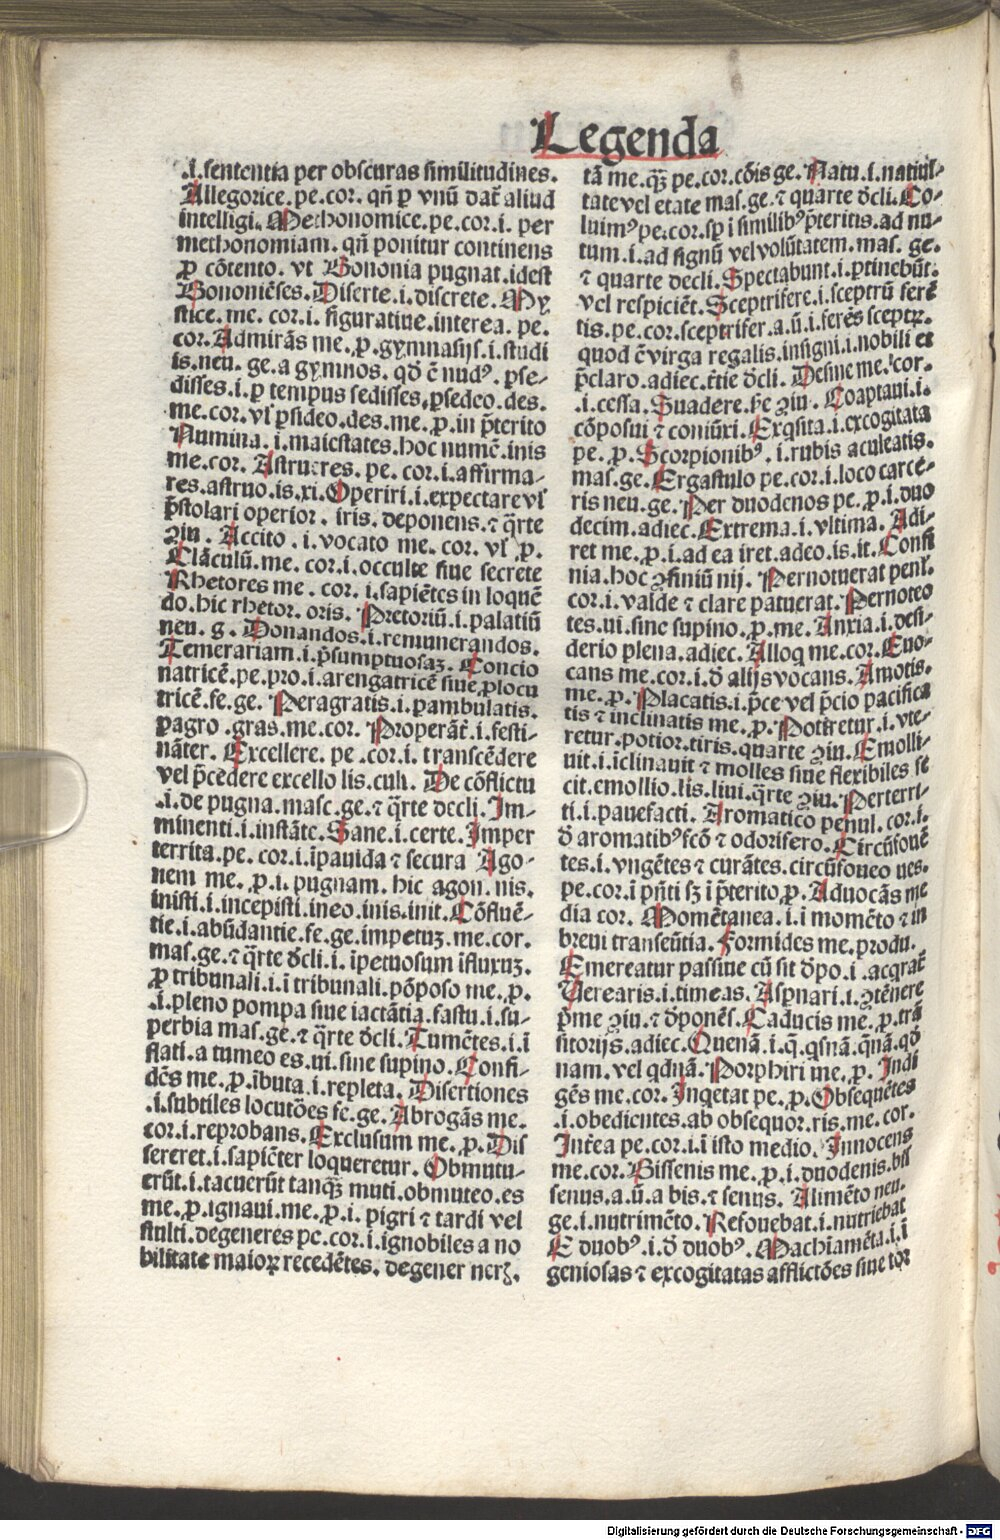 Legenda
.i. sententia per obscuras similitudines.
Allegorice. pe. cor. qñ ꝑ vnũ dat̃ aliud
intelligi. Methonomice. pe. cor. i. per
methonomiam. qñ ponitur continens
ꝓ cõtento. vt Bononia pugnat. idest
Bononiẽses. Diserte. i. discrete. My
stice. me. cor. i. figuratiue. interea. pe.
cor. Admirãs me. ꝓ. gymnasijs. i. studi
is. neu. ge. a gymnos. qđ ẽ nudꝰ. ꝑse-
disses. i. ꝑ tempus sedisses. ꝑsedeo. des.
me. cor. vl̃ ꝑsideo. des. me. ꝓ. in p̃terito
Numina. i. maiestates. hoc numẽ. inis
me. cor. Astrueres. pe. cor. i. affirma-
res. astruo. is. xi. Operiri. i. expectare vl̃
p̃stolari operior. iris. deponens. ⁊ q̃rte
ꝯiu. Accito. i. vocato me. cor. vl̃ ꝓ.
Clãculũ. me. cor. i. occulte siue secrete
Rhetores me. cor. i. sapiẽtes in loquẽ
do. hic rhetor. oris. Pretoriũ. i. palatiũ
neu. g. Donandos. i. remunerandos.
Temerariam. i. p̃sumptuosaꝫ. Concio
natricẽ. pe. pro. i. arengatricẽ siue ꝓlocu
tricẽ. fe. ge. Peragratis. i. ꝑambulatis.
ꝑagro. gras. me. cor. Properãt̃. i. festi-
nãter. Excellere. pe. cor. i. transcẽdere
vel p̃cedere excello lis. cui. De cõflictu
.i. de pugna. masc. ge. ⁊ q̃rte decli. Im-
minenti. i. instãte. Sane. i. certe. Imper
territa. pe. cor. i. ĩpauida ⁊ secura Ago-
nem me. ꝓ. i. pugnam. hic agon. nis.
inisti. i. incepisti. ineo. inis. init. Cõfluẽ-
tie. i. abũdantie. fe. ge. impetuꝫ. me. cor.
mas. ge. ⁊ q̃rte đcli. i. ĩpetuosum ĩfluxuꝫ.
ꝓ tribunali. i. ĩ tribunali. põposo me. ꝓ.
.i. pleno pompa siue iactãtia. fastu. i. su-
perbia mas. ge. ⁊ q̃rte đcli. Tumẽtes. i. ĩ
flati. a tumeo es. ui. sine supino. Confi-
dẽs me. ꝓ. ĩbuta. i. repleta. Disertiones
.i. subtiles locutões fe. ge. Abrogãs me.
cor. i. reprobans. Exclusum me. ꝓ. Dis
sereret. i. sapiẽter loqueretur. Obmutu-
erũt. i. tacuerũt tanq̃ꝫ muti. obmuteo. es
me. ꝓ. ignaui. me. ꝓ. i. pigri ⁊ tardi vel
stulti. degeneres pe. cor. i. ignobiles a no
bilitate maioꝝ recedẽtes. degener neri.
tã me. q̃ꝫ pe. cor. cõis ge. Natu. i. natiui-
tate vel etate mas. ge. ⁊ quarte đcli. Co-
luimꝰ pe. cor. sꝑ ĩ similibꝰ p̃teritis. ad nu-
tum. i. ad signũ vel volũtatem. mas. ge.
⁊ quarte decli. Spectabunt. i. ꝑtinebũt.
vel respiciẽt. Sceptrifere. i. sceptrũ ferẽ
tis. pe. cor. sceptrifer. a. ũ. i. ferẽs sceptꝝ.
quod ẽ virga regalis. insigni. i. nobili et
p̃claro. adiec. t̃tie đcli. Desine me. cor.
.i. cessa. Suadere. scđe ꝯiu. Coaptaui. i.
cõposui ⁊ coniũxi. Exq̃sita. i. excogitata
pe. ꝓ. Scorpionibꝰ. i. rubis aculeatis.
mas. ge. Ergastulo pe. cor. i. loco carce-
ris neu. ge. Per duodenos pe. ꝓ. i. duo
decim. adiec. Extrema. i. vltima. Adi-
ret me. ꝓ. i. ad ea iret. adeo. is. it. Confi
nia. hoc ꝯfiniũ nij. Pernotuerat penl.
cor. i. valde ⁊ clare patuerat. Pernoteo
tes. ui. sine supino. ꝓ. me. Anxia. i. desi-
derio plena. adiec. Alloq̃ me. cor. Euo-
cans me. cor. i. đ alijs vocans. Amotis.
me. ꝓ. Placatis. i. p̃ce vel p̃cio pacifica
tis ⁊ inclinatis me. ꝓ. Potiretur. i. vte-
retur. potior. tiris. quarte ꝯiu. Emolli-
uit. i. ĩclinauit ⁊ molles siue flexibiles fe
cit. emollio. lis. liui. q̃rte ꝯiu. Perterri-
ti. i. pauefacti. Aromatico penul. cor. i.
đ aromatibꝰ fc̃o ⁊ odorifero. Circũfouẽ
tes. i. vngẽtes ⁊ curãtes. circũfoueo ues.
pe. cor. ĩ pñti sꝫ ĩ p̃terito ꝓ. Aduocãs me
dia cor. Momẽtanea. i. ĩ momẽto ⁊ in
breui transeũtia. Formides me. produ.
Emereatur passiue cũ sit đpo. i. acq̃rat̃
Uerearis. i. timeas. Asꝑnari. i. ꝯtẽnere
p̃me ꝯiu. ⁊ đponẽs. Caducis me. ꝓ. trã
sitorijs. adiec. Quenã. i. q̃. q̃snã. q̃nã. qđ
nam. vel qdnã. Porphiri me. ꝓ. Indi
gẽs me. cor. Inq̃etat pe. ꝓ. Obsequẽtes
.i. obedientes. ab obsequor. ris. me. cor.
Int̃ea pe. cor. i. ĩ isto medio. Innocens
me. cor. Bissenis me. ꝓ. i. duodenis. bis
senus. a. ũ. a bis. ⁊ senus. Alimẽto neu.
ge. i. nutrimẽto. Refouebat. i. nutriebat
E duobꝰ. i. đ duobꝰ. Machĩamẽta. i. ĩ
geniosas ⁊ excogitatas afflictões siue tor
Digitalisierung gefördert durch die Deutsche Forschungsgemeinschaft - DFG